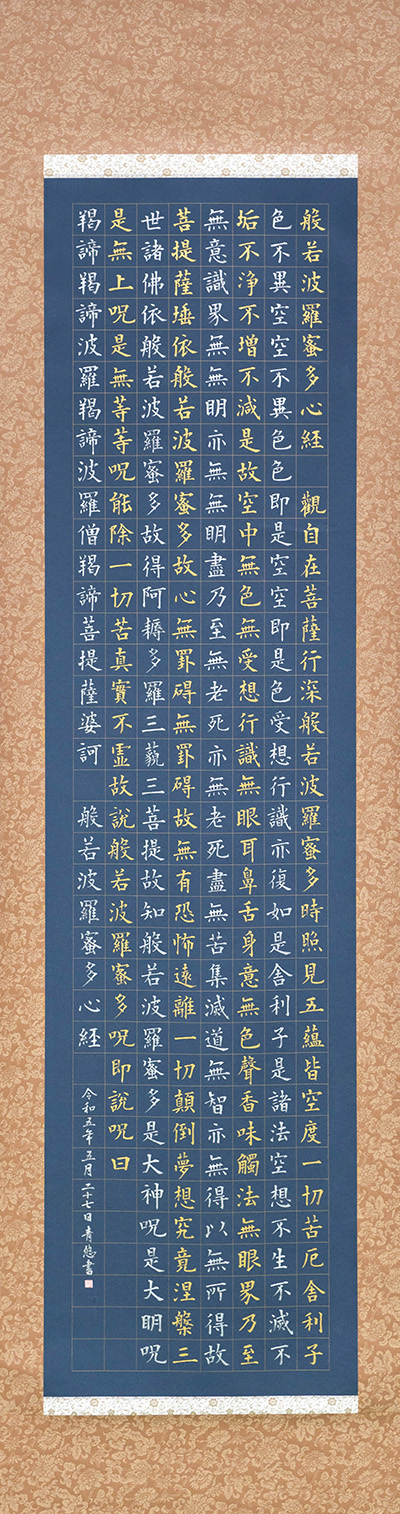 般若波羅蜜多心経　觀自在菩薩行深般若波羅蜜多時照見五蘊皆空度一切苦厄舎利子
色不異空空不異色色即是空空即是色受想行識亦復如是舎利子是諸法空想不生不滅不
垢不浄不増不減是故空中無色無受想行識無眼耳鼻舌身意無色聲香味觸法無眼界乃至
無意識界無無明亦無無明盡乃至無老死亦無老死盡無苦集滅道無智亦無得以無所得故
菩提薩埵依般若波羅蜜多故心無罣碍無罣碍故無有恐怖遠離一切顛倒夢想究竟涅槃三
世諸佛依般若波羅蜜多故得阿耨多羅三藐三菩提故知般若波羅蜜多是大神呪是大明呪
是無上呪是無等等呪能除一切苦真實不虚故説般若波羅蜜多呪即説呪曰
羯諦羯諦波羅羯諦波羅僧羯諦菩提薩婆訶　般若波羅蜜多心経
令和五年五月二十七日青悠書